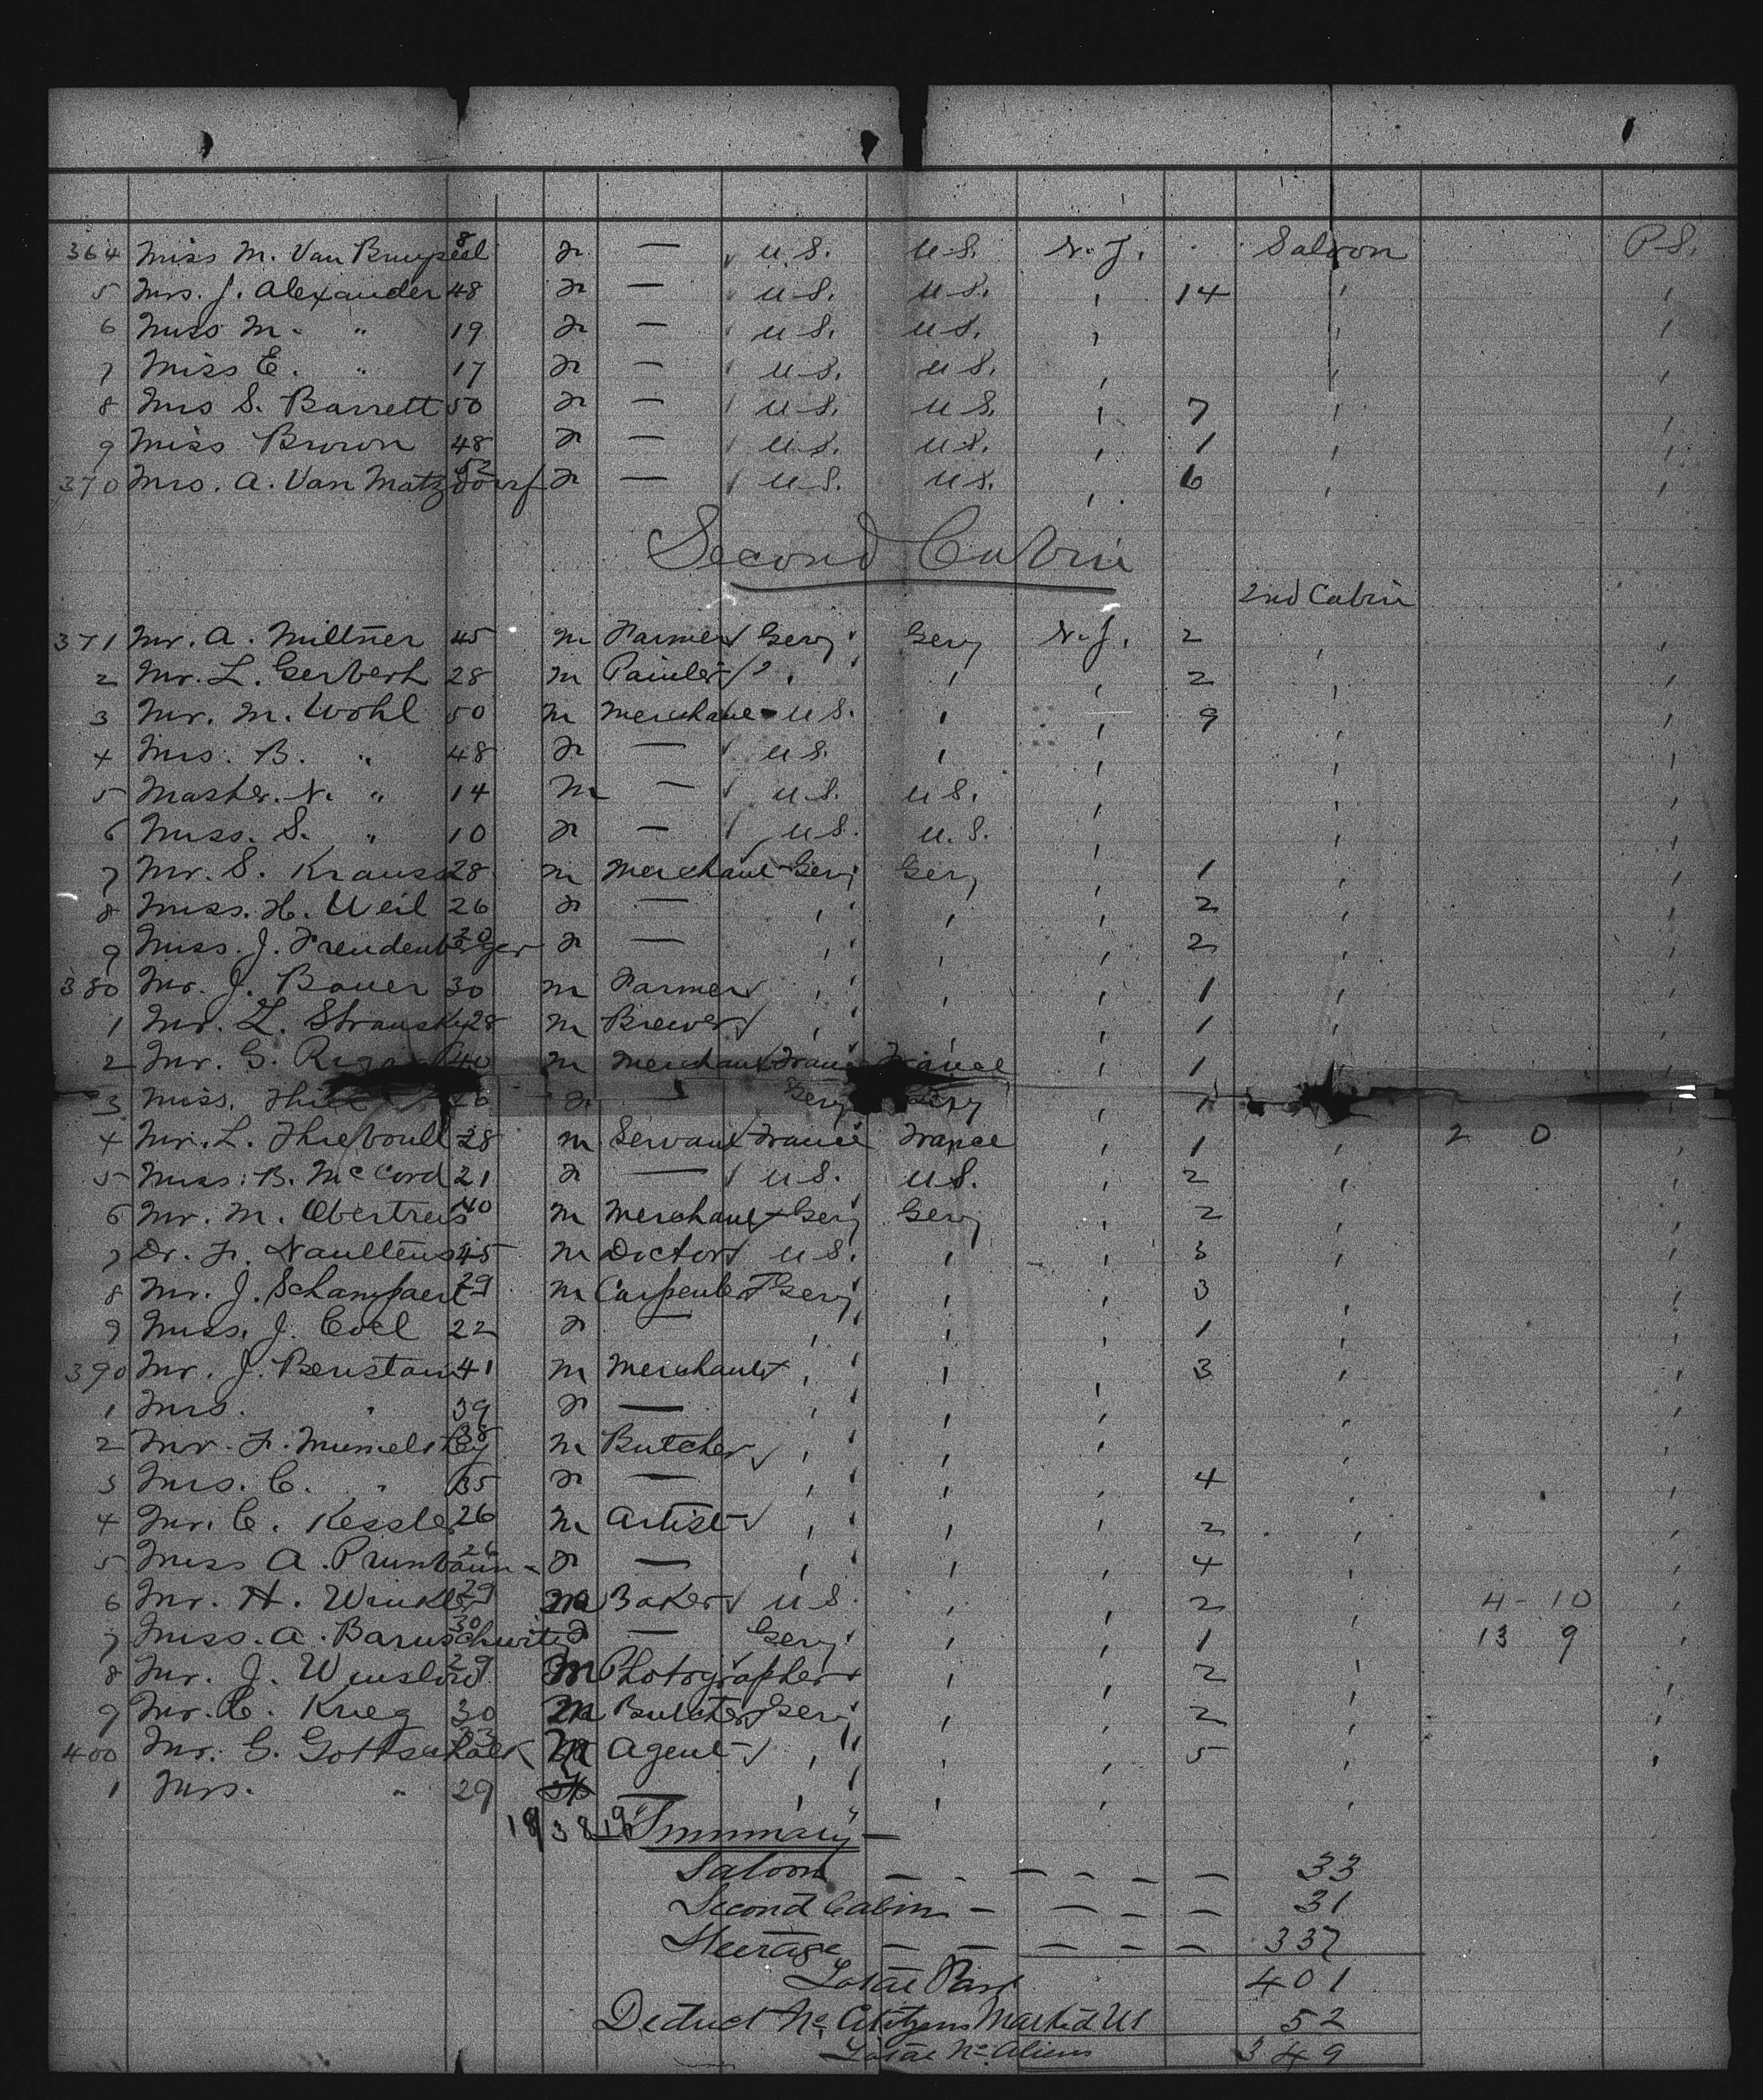 364 Miss M. Van 8 — U.S. U.S. N.J. Saloon P.S.
5 Mrs. J. Alexander 48 — U.S. U.S. " 14 " "
6 Miss M. " 19 — U.S. U.S. " " "
7 Miss E. " 17 — U.S. U.S. " " "
8 Mrs S. Barrett 50 — U.S. U.S. " 7 " "
9 Miss Brown 48 — U.S. U.S. " 1 " "
370 Mrs. A. Van Matzdorf 52 — U.S. U.S. " 6 " "
Second Cabin
2nd Cabin
371 Mr. A. Miltner 45 m Farmer Gery Gery N.J. 2 " "
2 Mr. L. Gerberh 28 m Painter " " " 2 " "
3 Mr. M. Wohl 50 m Merchant U.S. " " 9 " "
4 Mrs. B. " 48 — U.S. " " " "
5 Master. N. " 14 m — U.S. U.S. " " "
6 Miss. S. " 10 — U.S. U.S. " " "
7 Mr. S. Krauss 28 m Merchant Gery Gery " 1 " "
8 Miss. H. Weil 26 — " " " 2 " "
9 Miss. J. Freudenberger 20 — " " " 2 " "
380 Mr. J. Bauer 30 m Farmer " " " 1 " "
1 Mr. L. Stransky 28 m Brewer " " " 1 " "
2 Mr. G. 40 m Merchant France France " 1 " "
3 Miss. — Gery Gery " 1 " "
4 Mr. L. Thieboult 28 m Servant France France " 1 " 2 0 "
5 Miss. B. McCord 21 — U.S. U.S. " 2 " "
6 Mr. M. Obertreis 40 m Merchant Gery Gery " 2 " "
7 Dr. F. 45 m Doctor U.S. " " 3 " "
8 Mr. J. Schampaert 29 m Carpenter Gery " " 3 " "
9 Miss. J. Coel 22 — " " " 1 " "
390 Mr. J. Benstein 41 m Merchant " " " 3 " "
1 Mrs. " 39 — " " " " "
2 Mr. F. 38 m Butcher " " " " "
3 Mrs. C. " 35 — " " " 4 " "
4 Mr. C. Kessler 26 m Artist " " " 2 " "
5 Miss A. 26 — " " " 4 " "
6 Mr. H. Winkler 29 m Baker U.S. " " 2 " 4 - 10 "
7 Miss. A. 30 — Gery " " 1 " 13 9 "
8 Mr. J. Winslow 29 m Photographer " " 2 " "
9 Mr. C. Krieg 30 m Butcher Gery " " 2 " "
400 Mr. G. Gottschalk 33 m Agent " " " 5 " "
1 Mrs. " 29 — " " " " "
19 38 19 Summary —
Saloon — — — 33
Second Cabin — — — 31
Steerage — — — 337
Total Pass 401
Deduct No. Citizens Marked US 52
Total No. Aliens 349